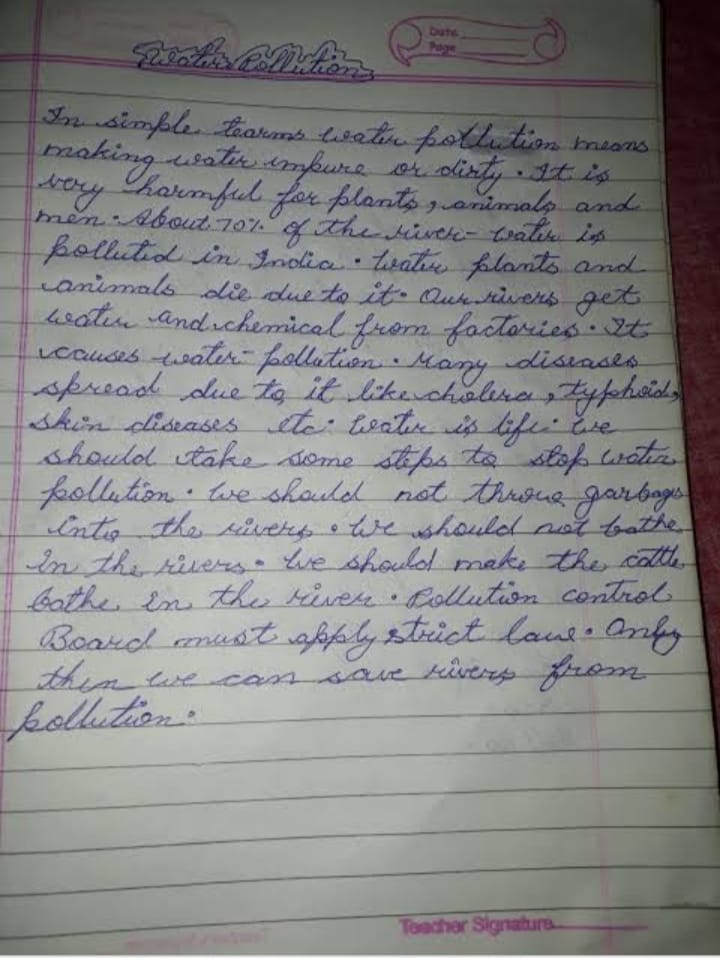 Date
Page
Water Pollution
In simple tearms water pollution means
making water impure or dirty. It is
very harmful for plants, animals and
men. About 70% of the river-water is
polluted in India. Water plants and
animals die due to it. Our rivers get
water and chemical from factories. It
causes water-pollution. Many diseases
spread due to it like cholera, typhoid,
skin diseases etc. Water is life. We
should take some steps to stop water
pollution. We should not throw garbage
into the rivers. We should not bathe
in the rivers. We should make the cattle
bathe in the river. Pollution control
Board must apply strict law. Only
then we can save rivers from
pollution.
Teacher Signature